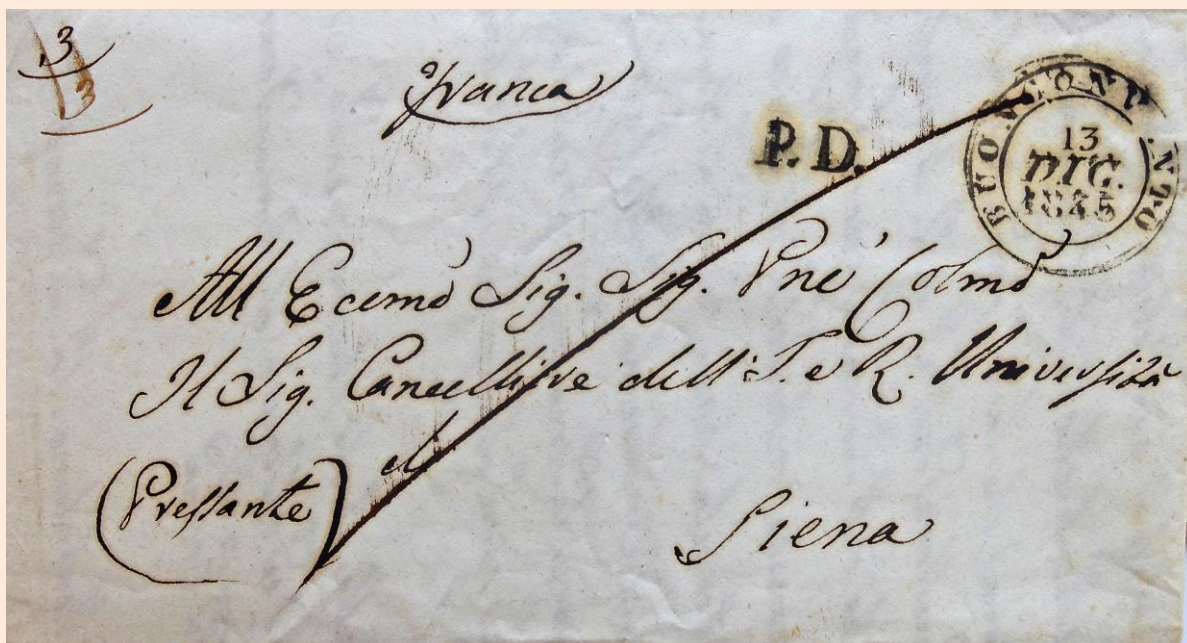 3
3
franca
P. D.
BUONCONVENTO
13
DIC.
1845
All Ecemo Sig. Sig. Pne Colmo
Il Sig. Cancelliere dell' I. e R. Università
di
(Pressante)
Siena